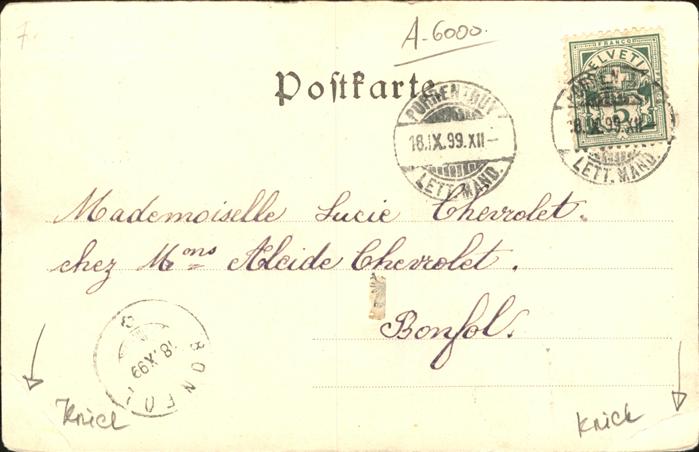 7.
A-6000.
Postkarte
FRANCO
HELVETIA
5
PORRENTRUY
18.IX.99.XII-
LETT. MAND
PORRENTRUY
18.IX.99.XII-
LETT. MAND
Mademoiselle Lucie Chevrolet.
chez Mons Alcide Chevrolet.
Bonfol.
BONFOL
18.IX.99
Knick
Knick